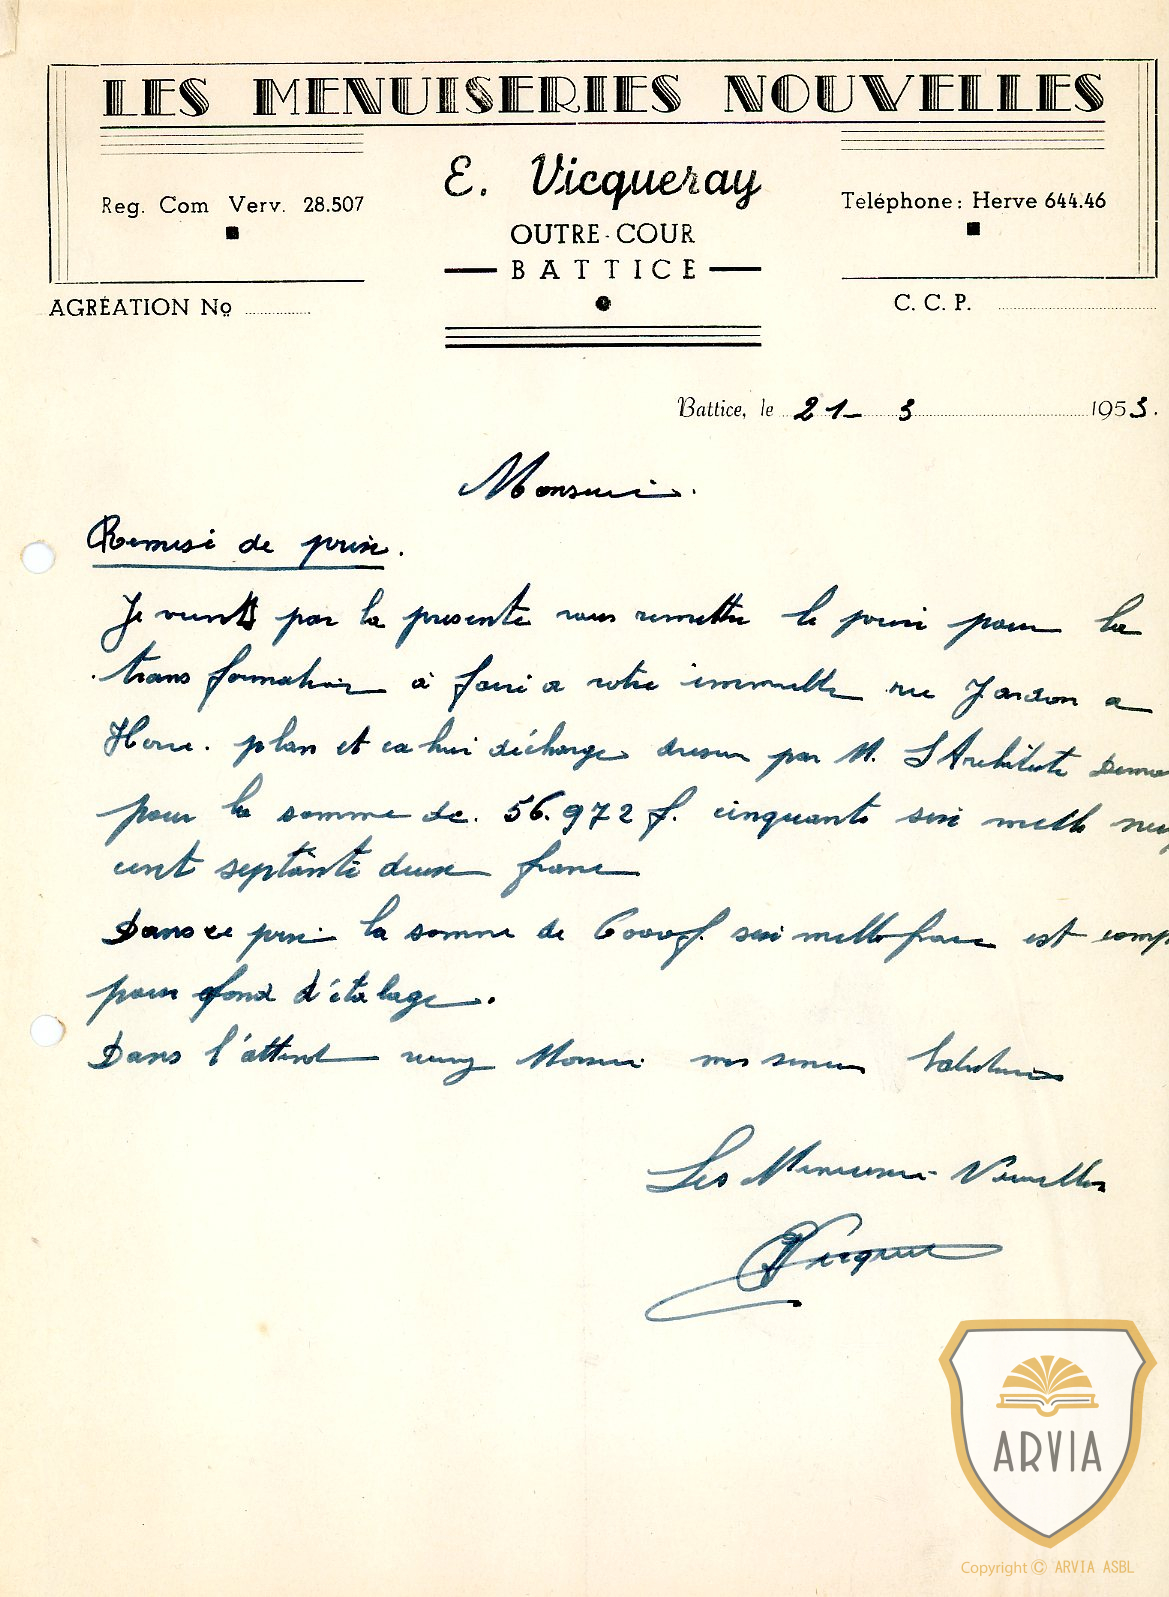 LES MENUISERIES NOUVELLES
E. Vicqueray
Reg. Com Verv. 28.507
Teléphone: Herve 644.46
OUTRE-COUR
BATTICE
AGRÉATION No
C. C. P.
Battice, le 21- 3 1953.
Monsieur.
Remise de prix.
Je vients par la presente vous remettre le prix pour la
transformation à faire a votre immeuble rue Jardon a
Herve. plan et cahier décharge dresser par M. L'Architecte
pour la somme de. 56.972 f. cinquante six mille neuf
cent septante deux franc
Dans ce prix la somme de 6000f. six mille franc est comp
pour fond d'étalage.
Dans l'attend Monsieur mes Salutations
Les Menuiserie Nouvelles
Vicqueray
ARVIA
Copyright © ARVIA ASBL